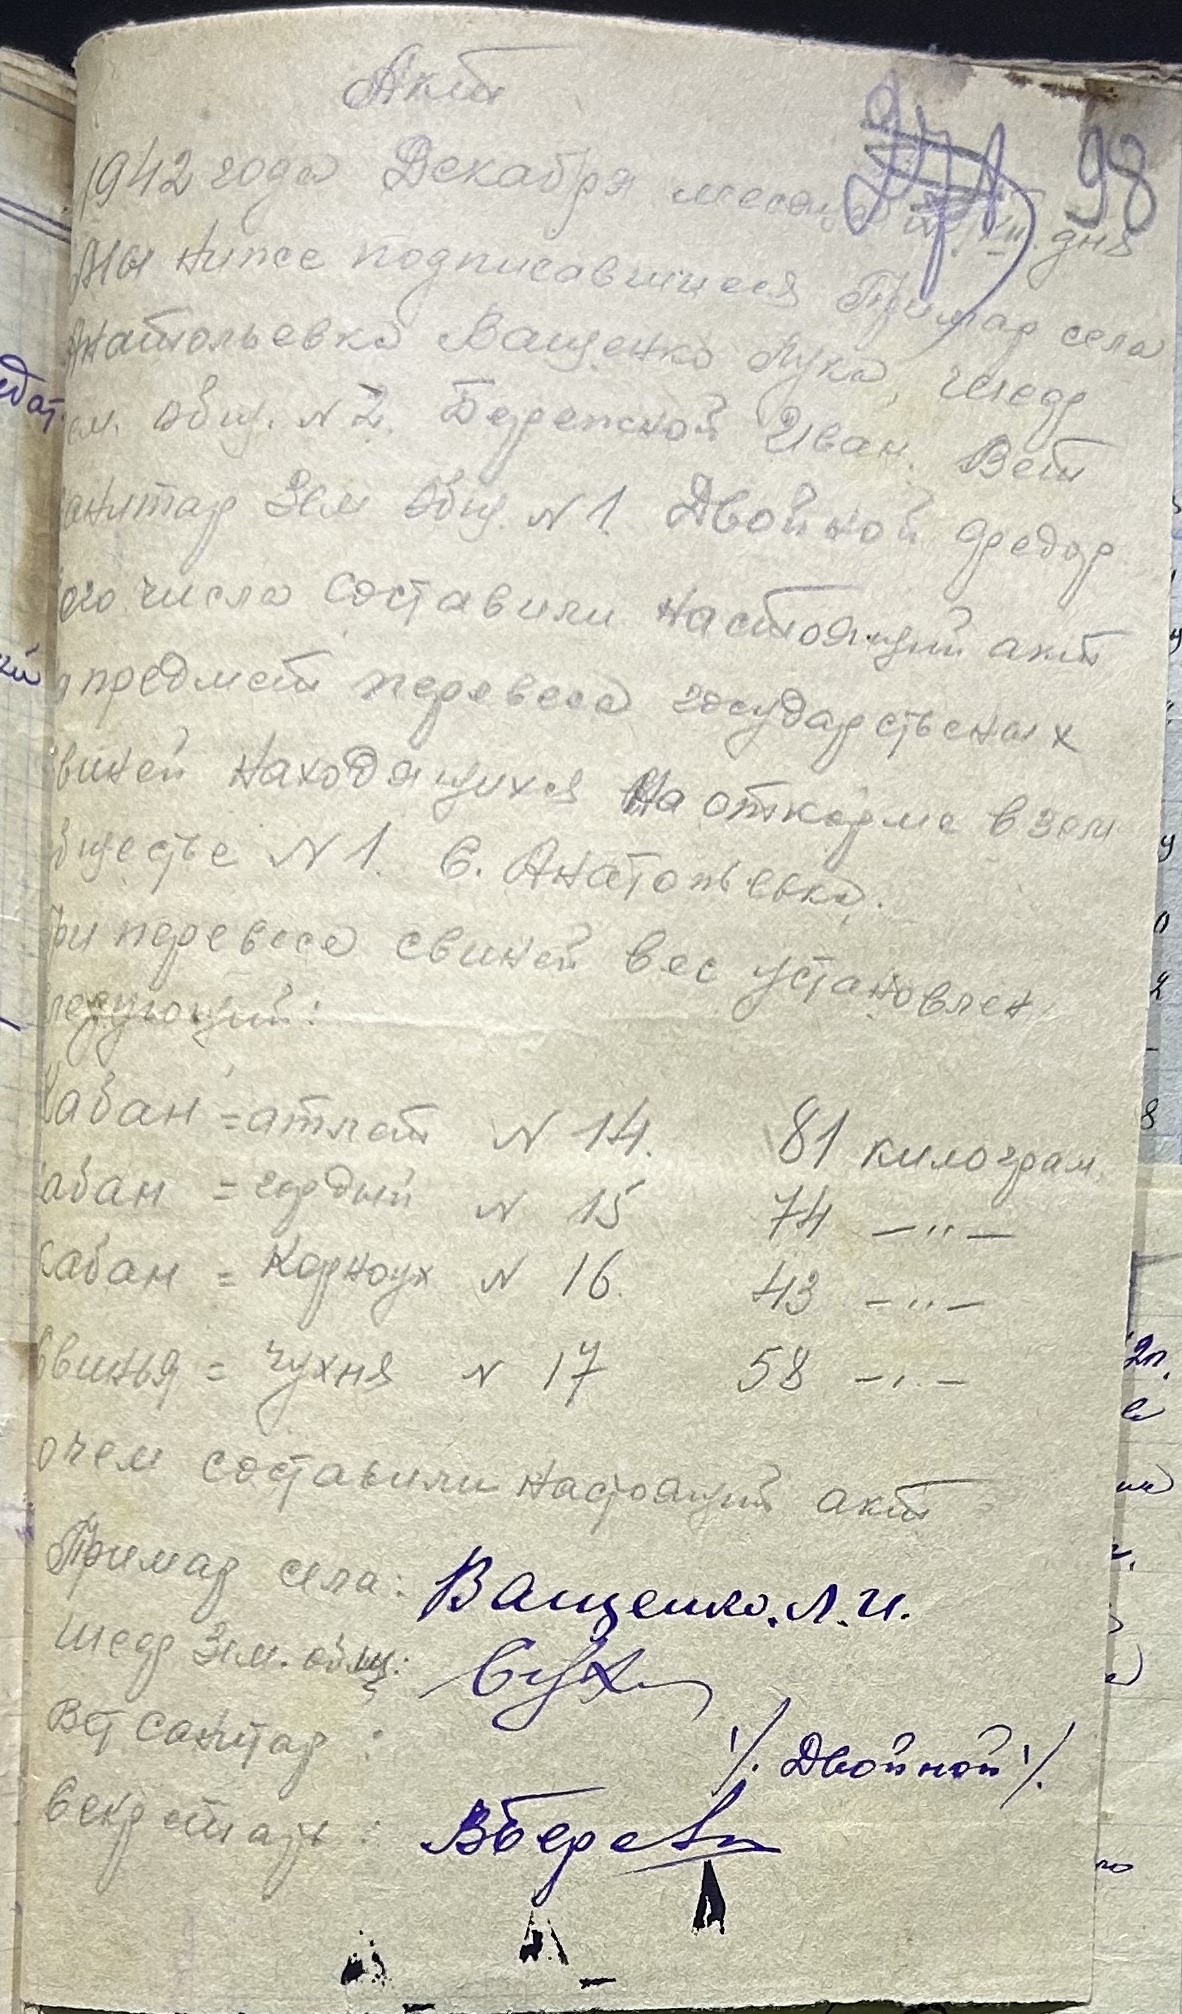 Акт
98
1942 года Декабря месяца дня
Мы ниже подписавшиеся Примар села
Анатольевка Ващенко Лука, шедр
ем. общ. N 2. Бережной Иван. Вет
анитар Зем Общ. N 1. Двойной Федор
его числа составили настоящий акт
предмет перевеса государственых
виней находящихся На откорме в зем
бществе N 1. С. Анатольевка.
ри перевесе свиней вес установлен
ледующий:
Кабан = атлет N 14. 81 килограм.
абан = гордый N 15 74 — " —
Кабан = Корноух N 16. 43 — " —
Свинья = чухня N 17 58 — " —
очем составили настоящий акт
Примар села: Ващенко. Л. И.
шедр Зем. общ:
Вет санитар : /. Двойной /.
Секретарь :